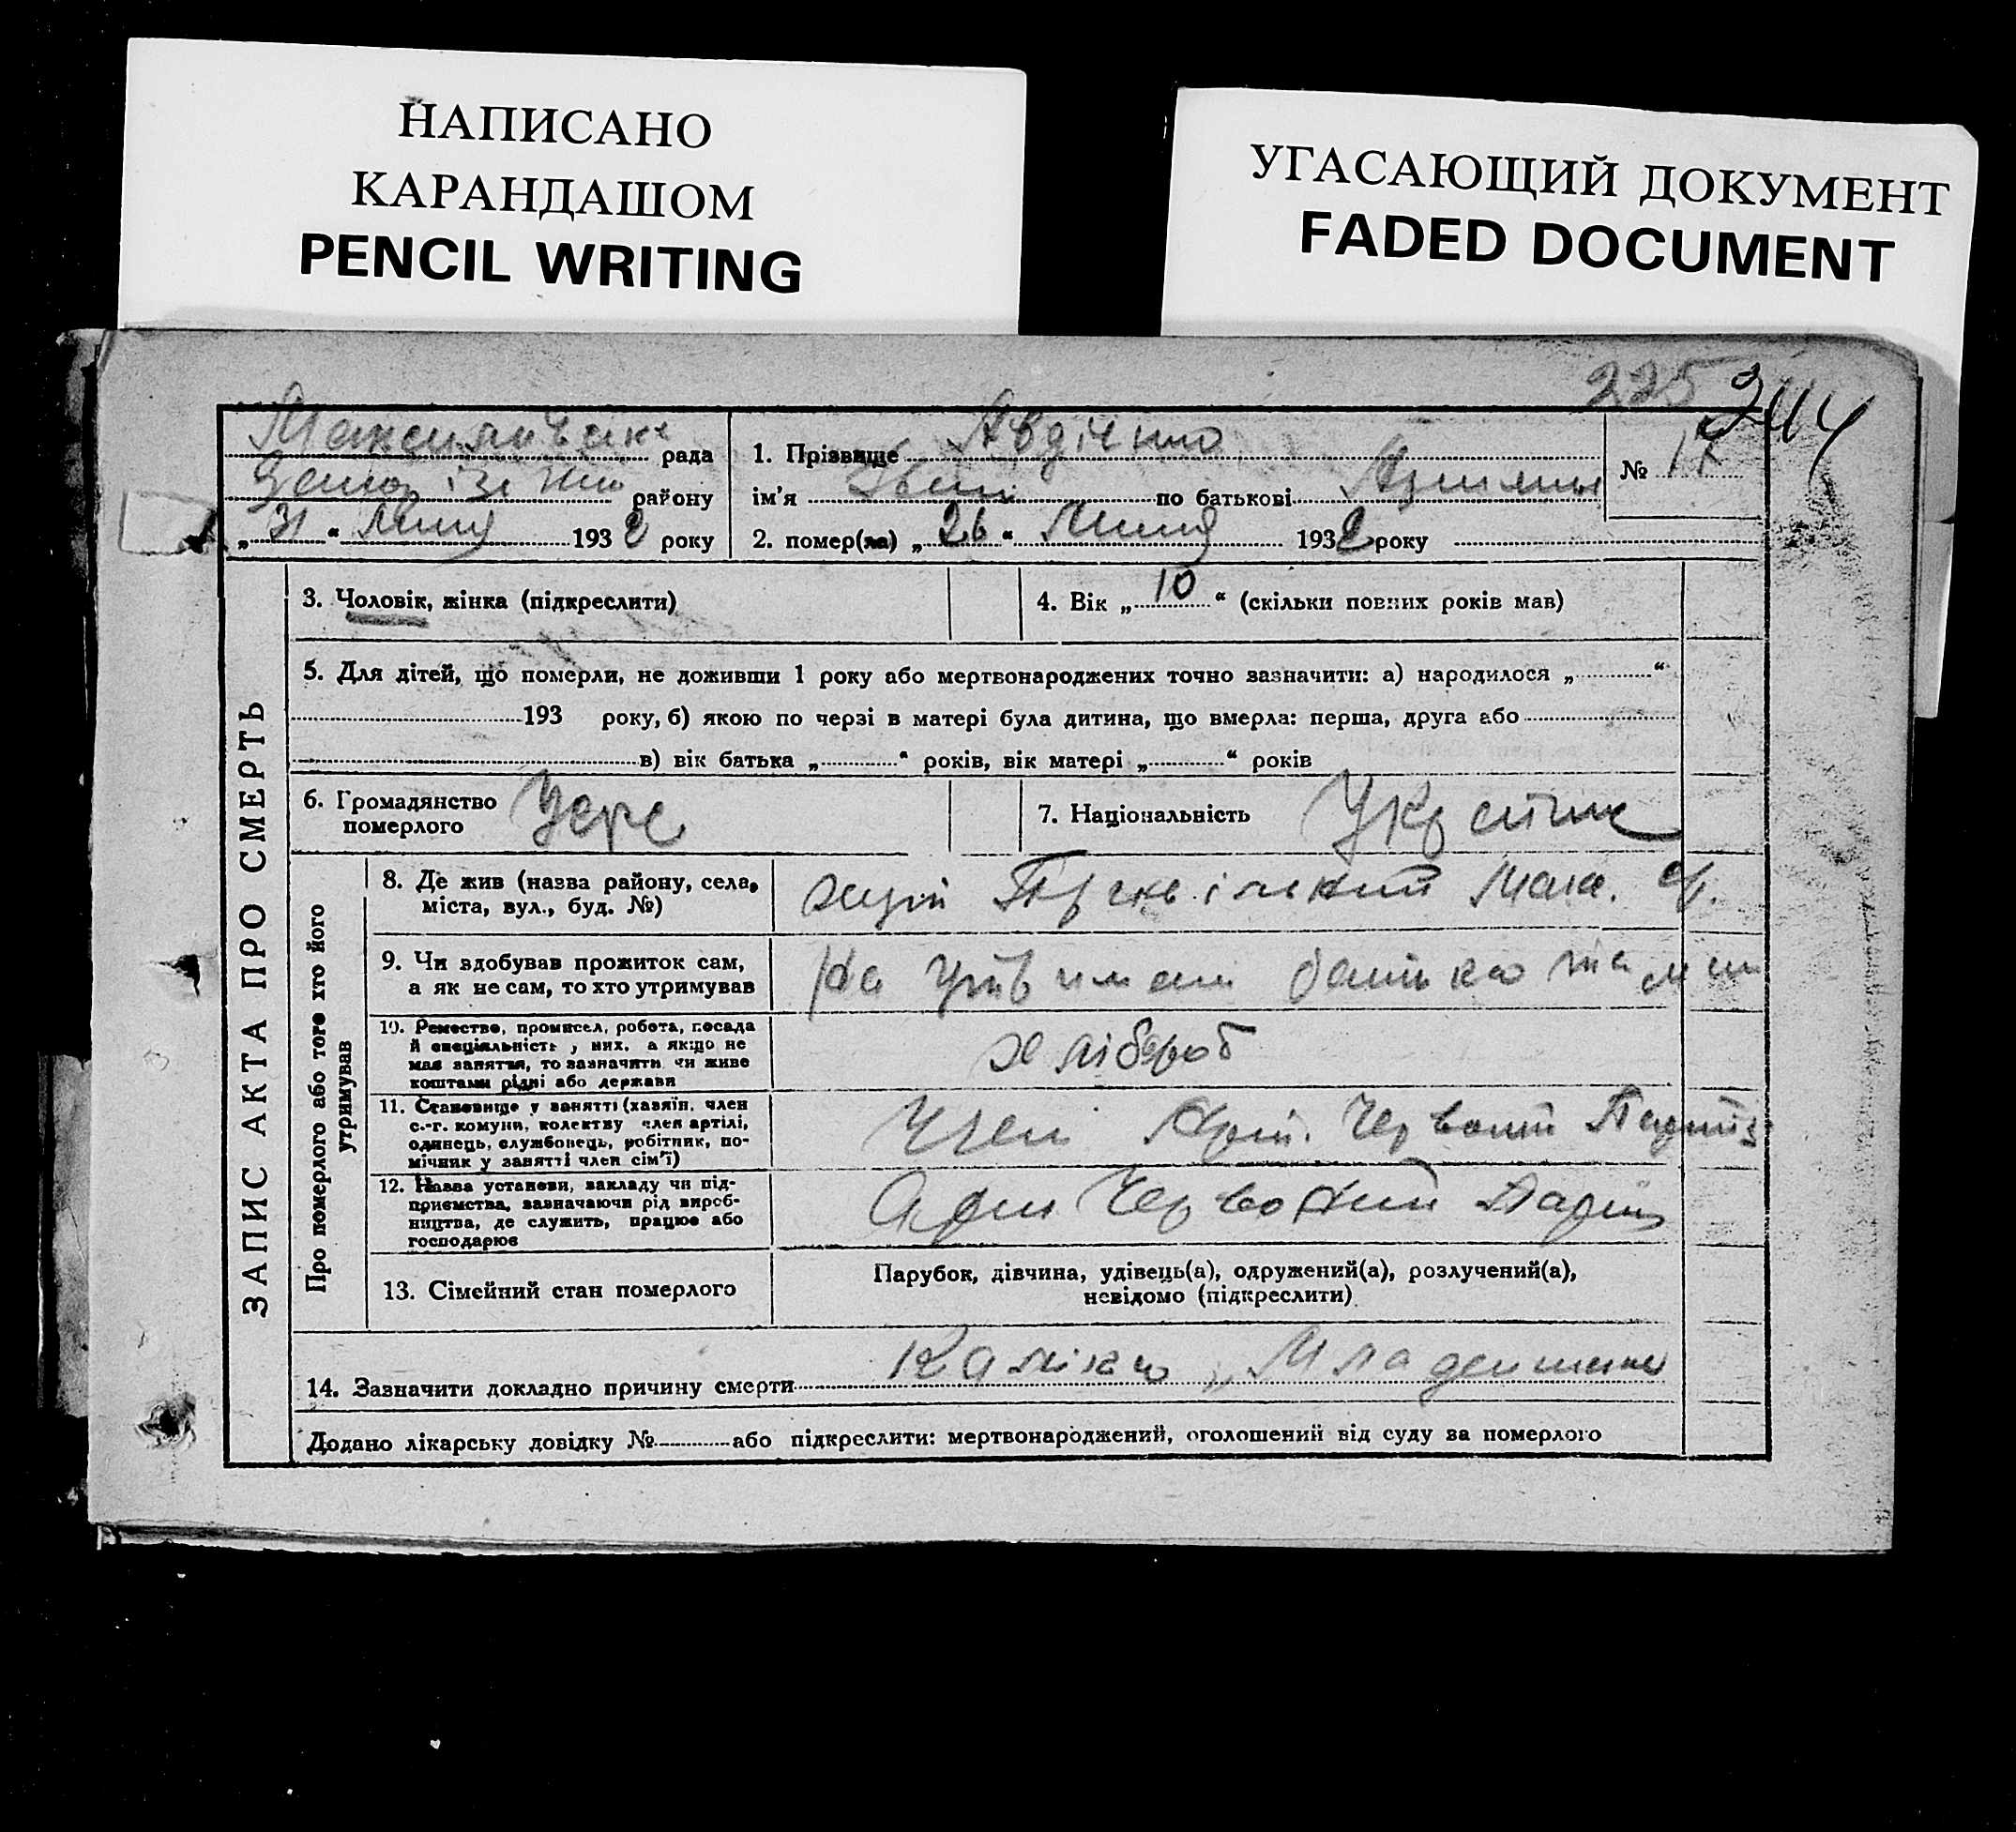 НАПИСАНО
КАРАНДАШОМ
PENCIL WRITING
УГАСАЮЩИЙ ДОКУМЕНТ
FADED DOCUMENT
225
рада
району
„31“ 1932 року
1. Прізвище Авдієнко
ім’я Іван по батькові
2. помер(ла) „26“ 1932 року
№ 17
ЗАПИС АКТА ПРО СМЕРТЬ
3. Чоловік, жінка (підкреслити)
4. Вік „10“ (скільки повних років мав)
5. Для дітей, що померли, не доживши 1 року або мертвонароджених точно зазначити: а) народилося „ “
193 року, б) якою по черзі в матері була дитина, що вмерла: перша, друга або
в) вік батька „ “ років, вік матері „ “ років
6. Громадянство
померлого
Усрс
7. Національність
Про померлого або того хто його
утримував
8. Де жив (назва району, села,
міста, вул., буд. №)
9. Чи здобував прожиток сам,
а як не сам, то хто утримував
На
10. Ремество, промисел, робота, посада
й спеціяльність у них, а якщо не
мав заняття, то зазначити чи живе
коштами рідні або держави
хлібороб
11. Становище у занятті (хазяїн, член
с.-г. комуни, колективу член артілі,
одинець, службовець, робітник, по-
мічник у занятті член сім’ї)
Член Червоний
12. Назва установи, закладу чи під-
приємства, зазначаючи рід вироб-
ництва, де служить, працює або
господарює
Червоний
13. Сімейний стан померлого
Парубок, дівчина, удівець(а), одружений(а), розлучений(а),
невідомо (підкреслити)
14. Зазначити докладно причину смерти
Додано лікарську довідку № або підкреслити: мертвонароджений, оголошений від суду за померлого